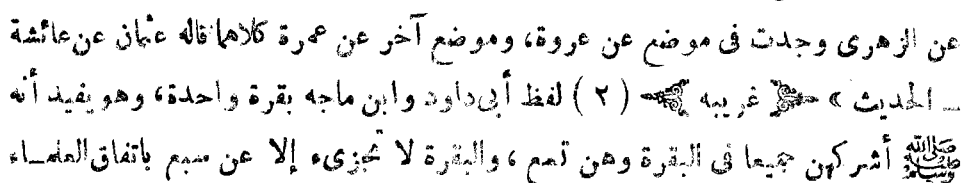 عن الزهرى وجدت فى موضع عن عروة، وموضع آخر عن عمرة كلاهما قاله عثمان عن عائشة
ـ الحديث » ﴿ غريبه ﴾ (٢) لفظ أبى داود وابن ماجه بقرة واحدة، وهو يفيد أنه
ﷺ أشركهن جميعا فى البقرة وهن تسع ، والبقرة لا تجزىء إلا عن سبع باتفاق العلمـاء